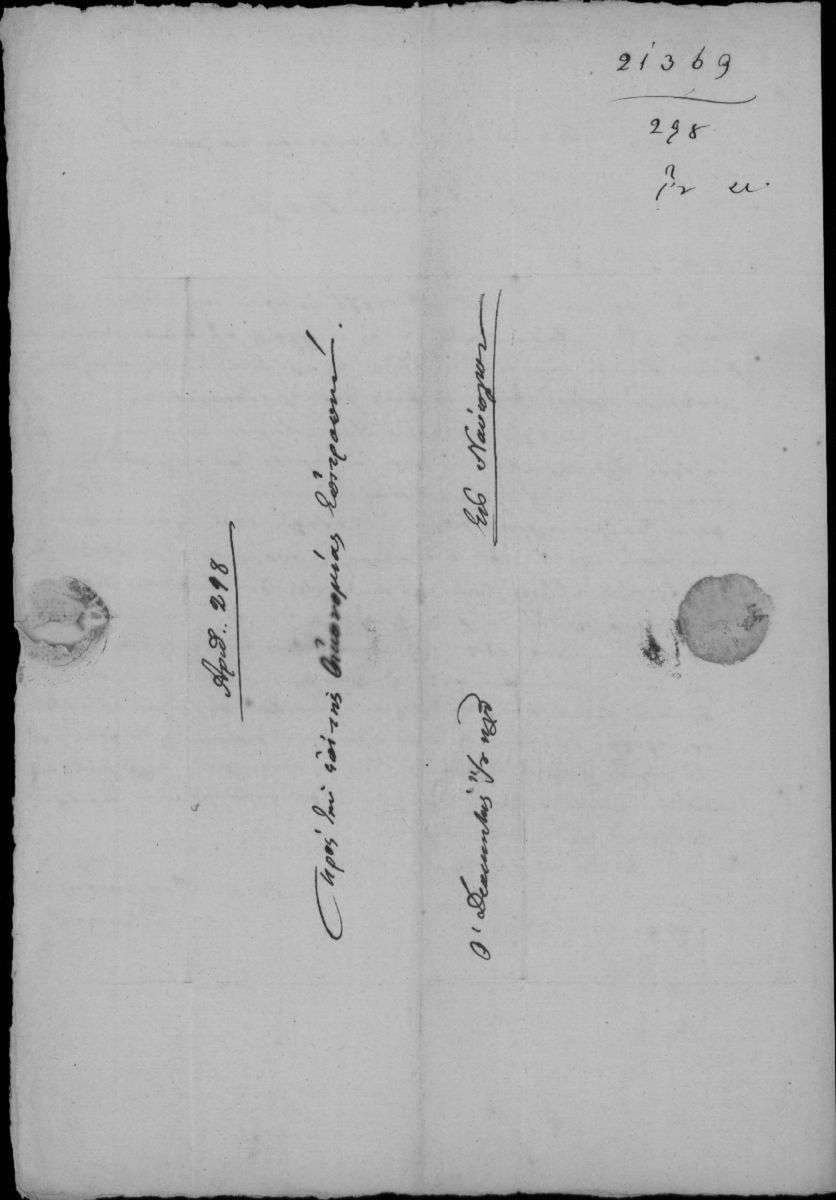 21369
298
Ἀριθ. 298
Πρὸς τὴν ἐπὶ τῆς Οἰκονομίας Ἐπιτροπήν.
Εἰς Ναύπλιον
Ὁ Διοικητὴς